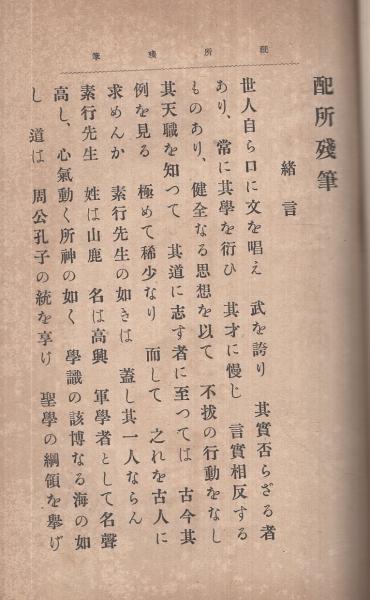 配所殘筆
配所殘筆
緒言
世人自ら口に文を唱え　武を誇り　其實否らざる者
あり、常に其學を衍ひ　其才に慢じ　言實相反する
ものあり、健全なる思想を以て　不拔の行動をなし
其天職を知つて　其道に志す者に至つては　古今其
例を見る　極めて稀少なり　而して　之れを古人に
求めんか　素行先生の如きは　蓋し其一人ならん
素行先生　姓は山鹿　名は高興　軍學者として名聲
高し、心氣動く所神の如く　學識の該博なる海の如
し　道は　周公孔子の統を享け　聖學の綱領を擧げ